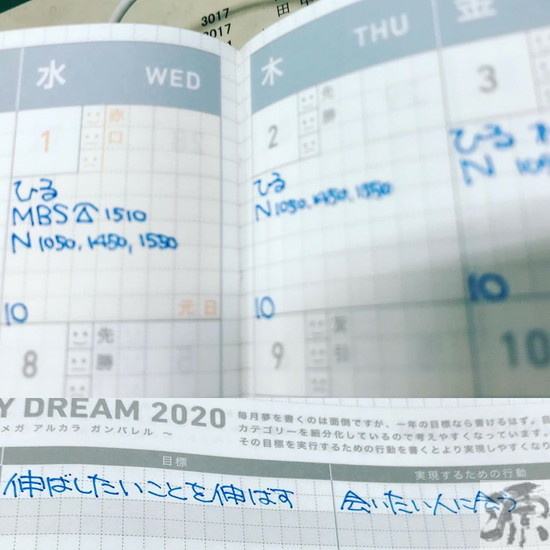 3017
3017
田中
水 WED
木 THU
金
1 赤口
2 先勝
3
ひる
MBS 1510
N 1050, 1450, 1550
10
元日
ひる
N 1050, 1450, 1550
10
ひる
N
10
8 先勝
9 友引
10
Y DREAM 2020
メガ アルカラ ガンバレル ～
毎月夢を書くのは面倒ですが、一年の目標なら書けるはず。
カテゴリーを細分化しているので考えやすくなっています。
その目標を実行するための行動を書くとより実現しやすくなり
目標
実現するための行動
伸ばしたいことを伸ばす
会いたい人に会う